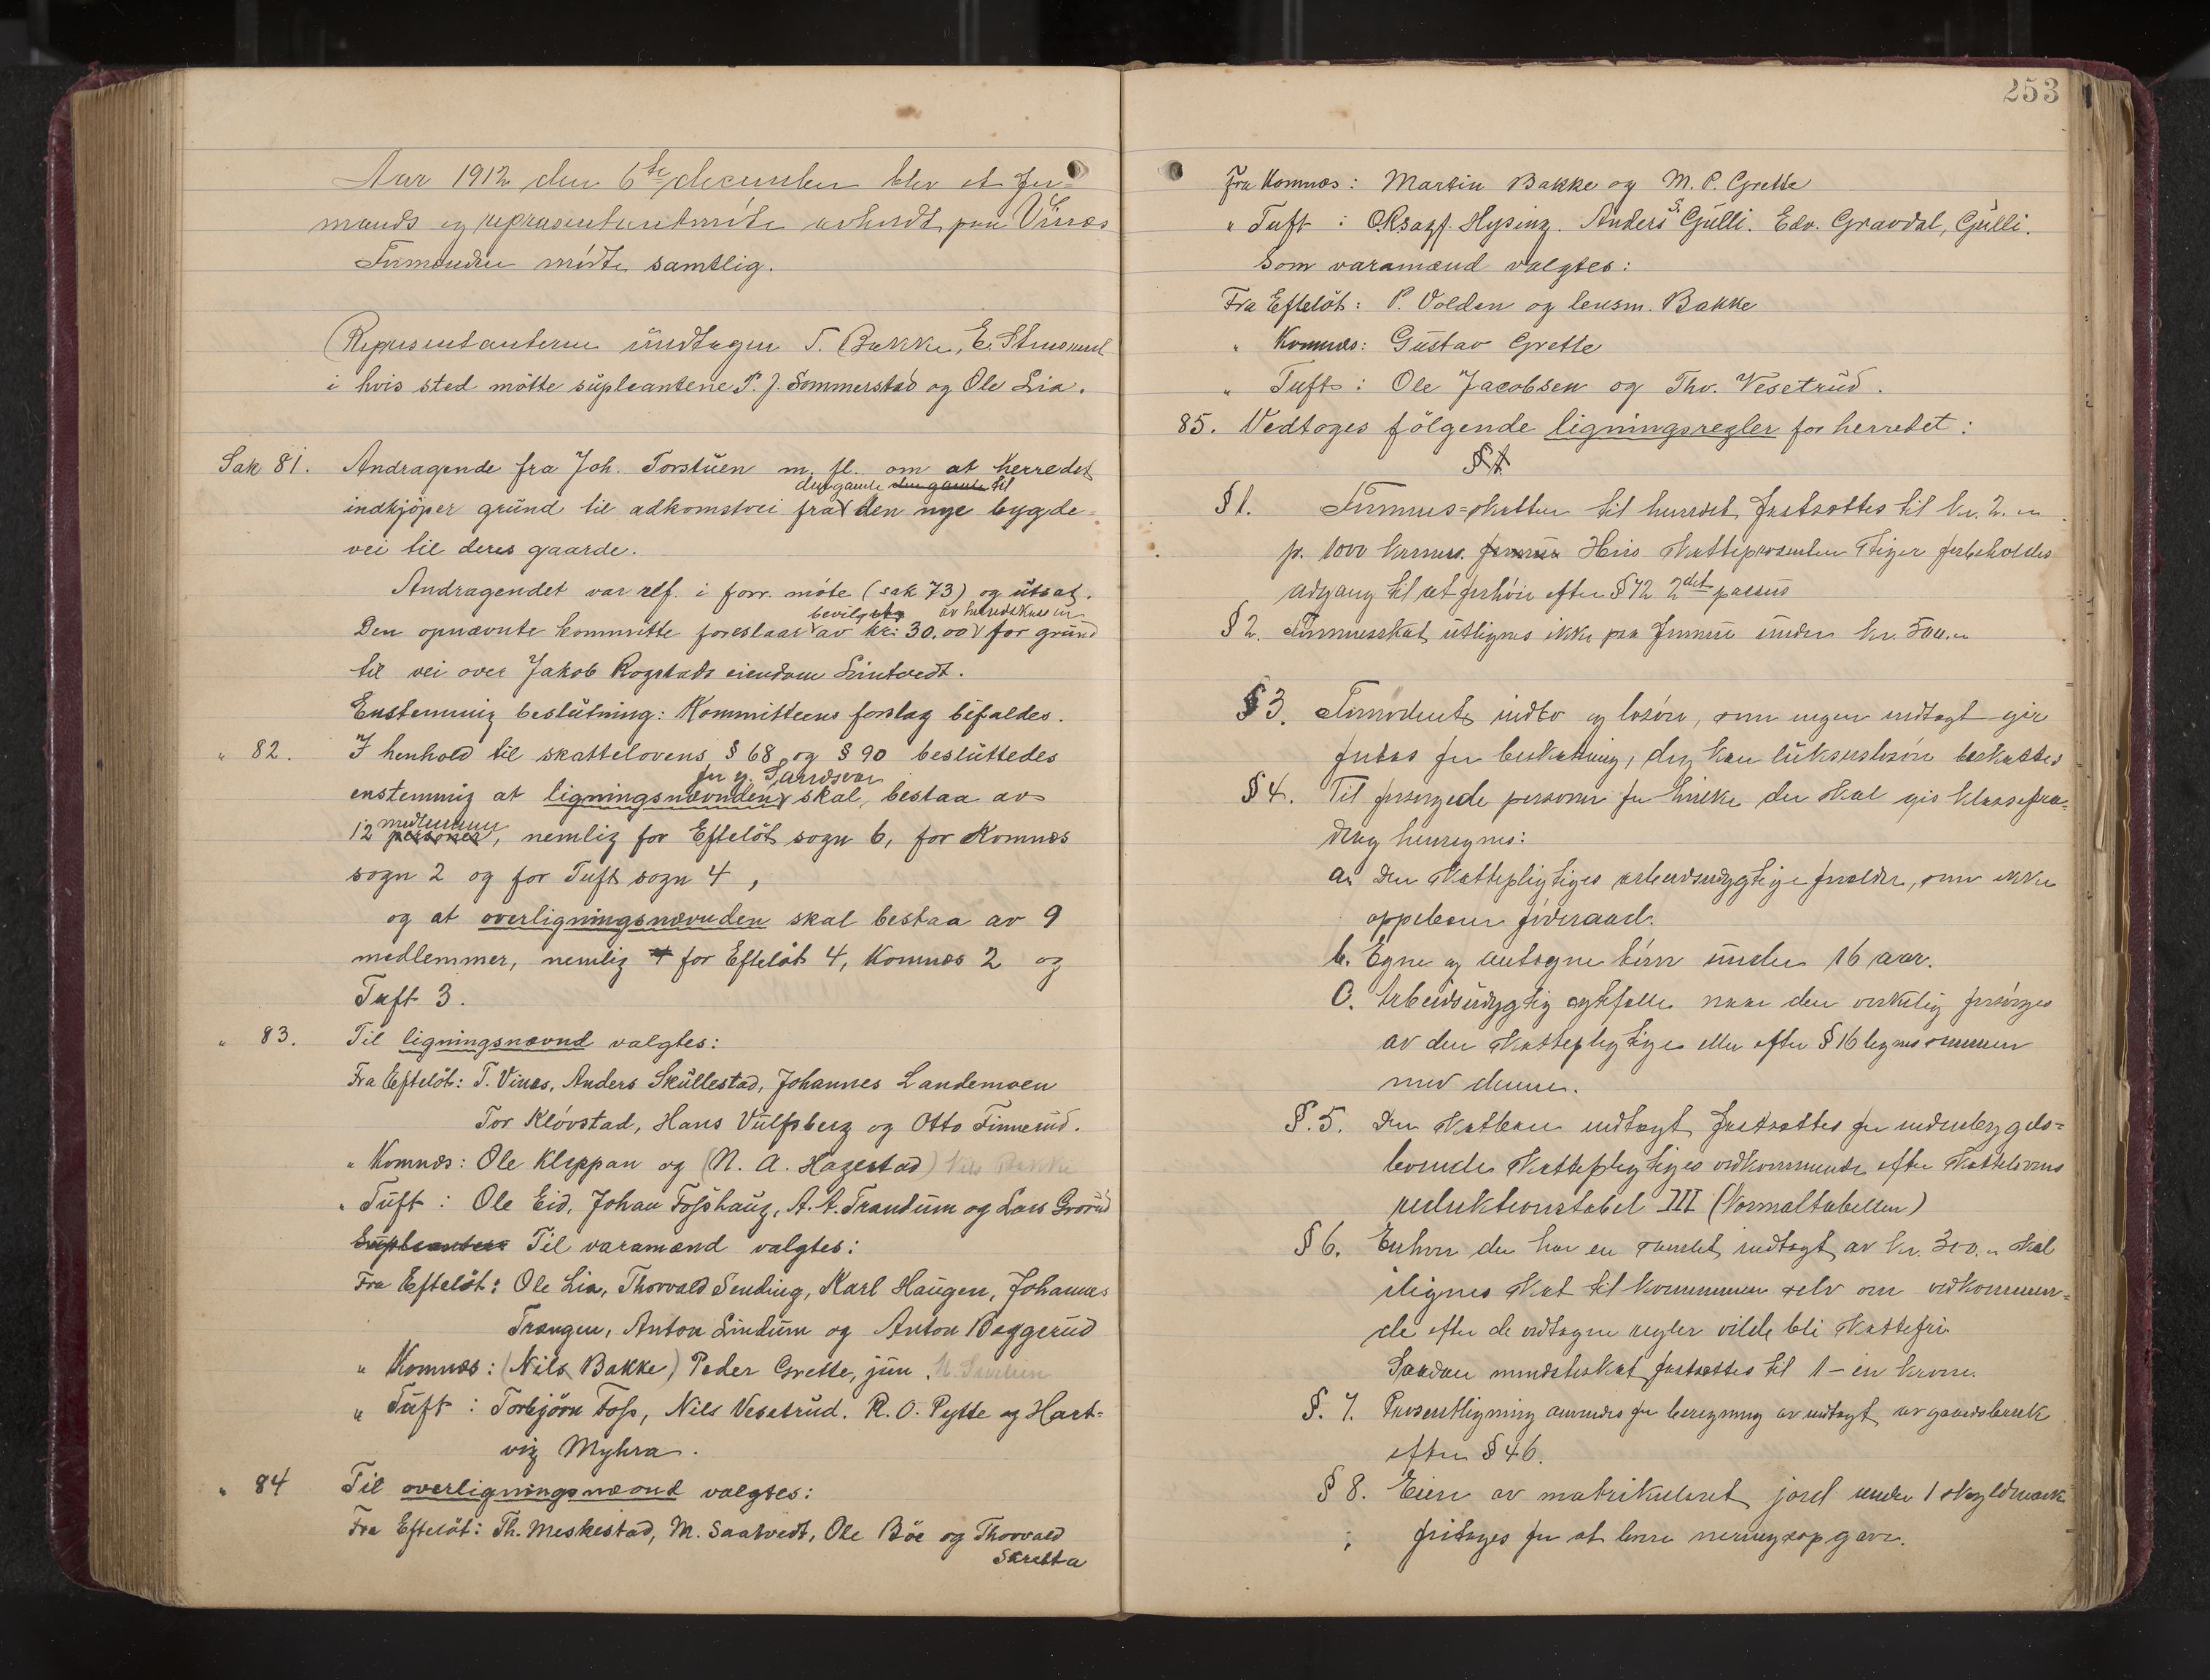 253
Aar 1912 den 6te december blev et for-
mands og repræsentantmöte avholdt paa Vinæs
Formændene mödte samtlig.
Representanterne undtagen T. Bakke, E.
i hvis sted mötte supleantene P. J. Sommerstad og Ole Lia.
Sak 81. Andragende fra Joh. Torstuen m. fl. om at herredet
den gamle den gamle til
indkjöper grund til adkomstvei fra den nye bygde-
vei til deres gaarde.
Andragendet var ref. i forr. möte (sak 73) og utsat.
bevilget av herredskassen
Den opnævnte kommitte foreslaar av kr. 30.00 for grund
til vei over Jakob Rogstads eiendom Lintvedt.
Enstemmig beslutning: Kommitteens forslag bifaldes.
" 82. I henhold til skattelovens § 68 og § 90 besluttedes
for y. Sandsvær
enstemmig at ligningsnævnden skal bestaa av
medlemmer
12 personer, nemlig for Efteløt sogn 6, for Komnæs
sogn 2 og for Tuft sogn 4,
og at overligningsnævnden skal bestaa av 9
medlemmer, nemlig 4 for Efteløt 4, Komnæs 2 og
Tuft 3.
" 83. Til ligningsnævnd valgtes:
Fra Efteløt: T. Vinæs, Anders Skullestad, Johannes Landemoen
Tor Klövstad, Hans Vulfsberg og Otto Finnerud.
" Komnæs: Ole Kleppan og (N. A. Hagestad) Nils Bakke
" Tuft: Ole Eid, Johan Fosshaug, A. A. Trandum og Lars Grorud
Supleanter Til varamænd valgtes:
Fra Efteløt: Ole Lia, Thorvald Sending, Karl Haugen, Johannes
Trangen, Anton Lindum og Anton Baggerud
" Komnæs: (Nils Bakke) Peder Grette, jun.
" Tuft: Torbjörn Foss, Nils Vesetrud, R. O. Pytte og Hart-
vig Myhra.
" 84 Til overligningsnævnd valgtes:
Fra Efteløt: Th. Meskestad, M. Saatvedt, Ole Böe og Thorvald
Skretta
Fra Komnæs: Martin Bakke og M. P. Grette
S.
" Tuft: O. Ksagf. Hysing. Anders Gulli. Edv. Gravdal, Gulli.
Som varamænd valgtes:
Fra Efteløt: P. Volden og lensm. Bakke
" Komnæs: Gustav Grette
" Tuft: Ole Jacobsen og Thv. Vesetrud.
85. Vedtoges fölgende ligningsregler for herredet:
§ 1.
§ 1. Formues-skatten til herredet fastsættes til kr. 2.
p. 1000 kroner formue Hvis skatteprosenten stiger forbeholdes
adgang til at forhöie efter § 72 2det passus
§ 2. Formuesskat utlignes ikke paa formue under kr. 500.
§ 3. Formodentlig indbo og lösöre, som ingen indtægt gir
fritas for beskatning, dog kan lukuslösöre beskattes
§ 4. Til forsörgede personer for hvilke der skal gis klassefra-
drag henregnes:
a. Den skattepligtiges arbeidsudygtige forældre, som ikke
oppebærer föderaad.
b. Egne og antagne börn under 16 aar.
c. Arbeidsudygtig egtefælle naar den virkelig forsörges
av den skattepligtige eller efter § 16 lignes sammen
med denne.
§. 5. Den skatbare indtægt fastsættes for indenbygds-
boende skattepligtiges vedkommende efter skattelovens
reduktionstabel III (Normaltabellen)
§ 6. Enhver der har en samlet indtægt av kr. 300. skal
ilignes skat til kommunen selv om vedkommen-
de efter de vedtagne regler vilde bli skattefri
Saadan mindsteskat fastsættes til 1 - en krone.
§. 7. Prosentligning anvendes for beregning av indtægt av gaardsbruk
efter § 46.
§ 8. Eiere av matrikuleret jord under 1 skyldmark
fritages for at levere næringsopgave.